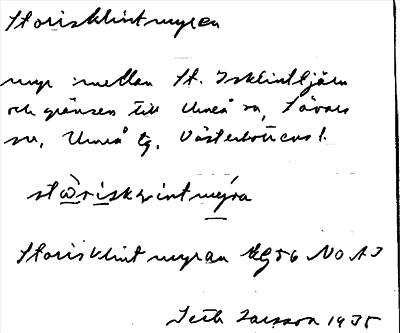 Storisklintmyren
myr mellan St. Isklinttjärn
och gränsen till Umeå sn, Sävars
sn, Umeå tg, Västerbottens l.
Storisklintmyran EG56 NO A3
Seth Larsson 1935